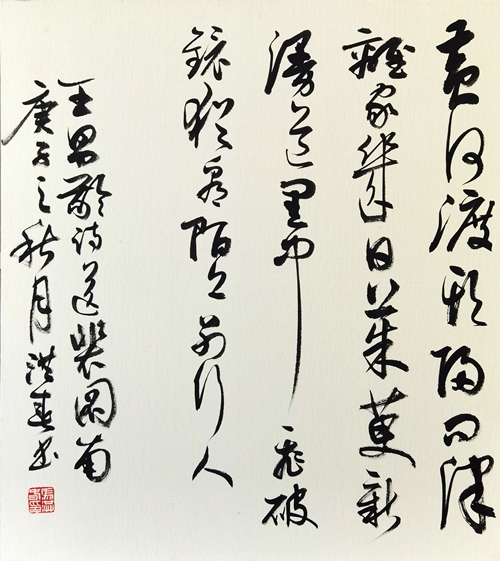 黄河渡頭歸問津
離家幾日茱萸新
漫道閨中飛破
鏡猶看陌上别行人
王昌齡詩送裴圖南
庚子之秋月洪春书